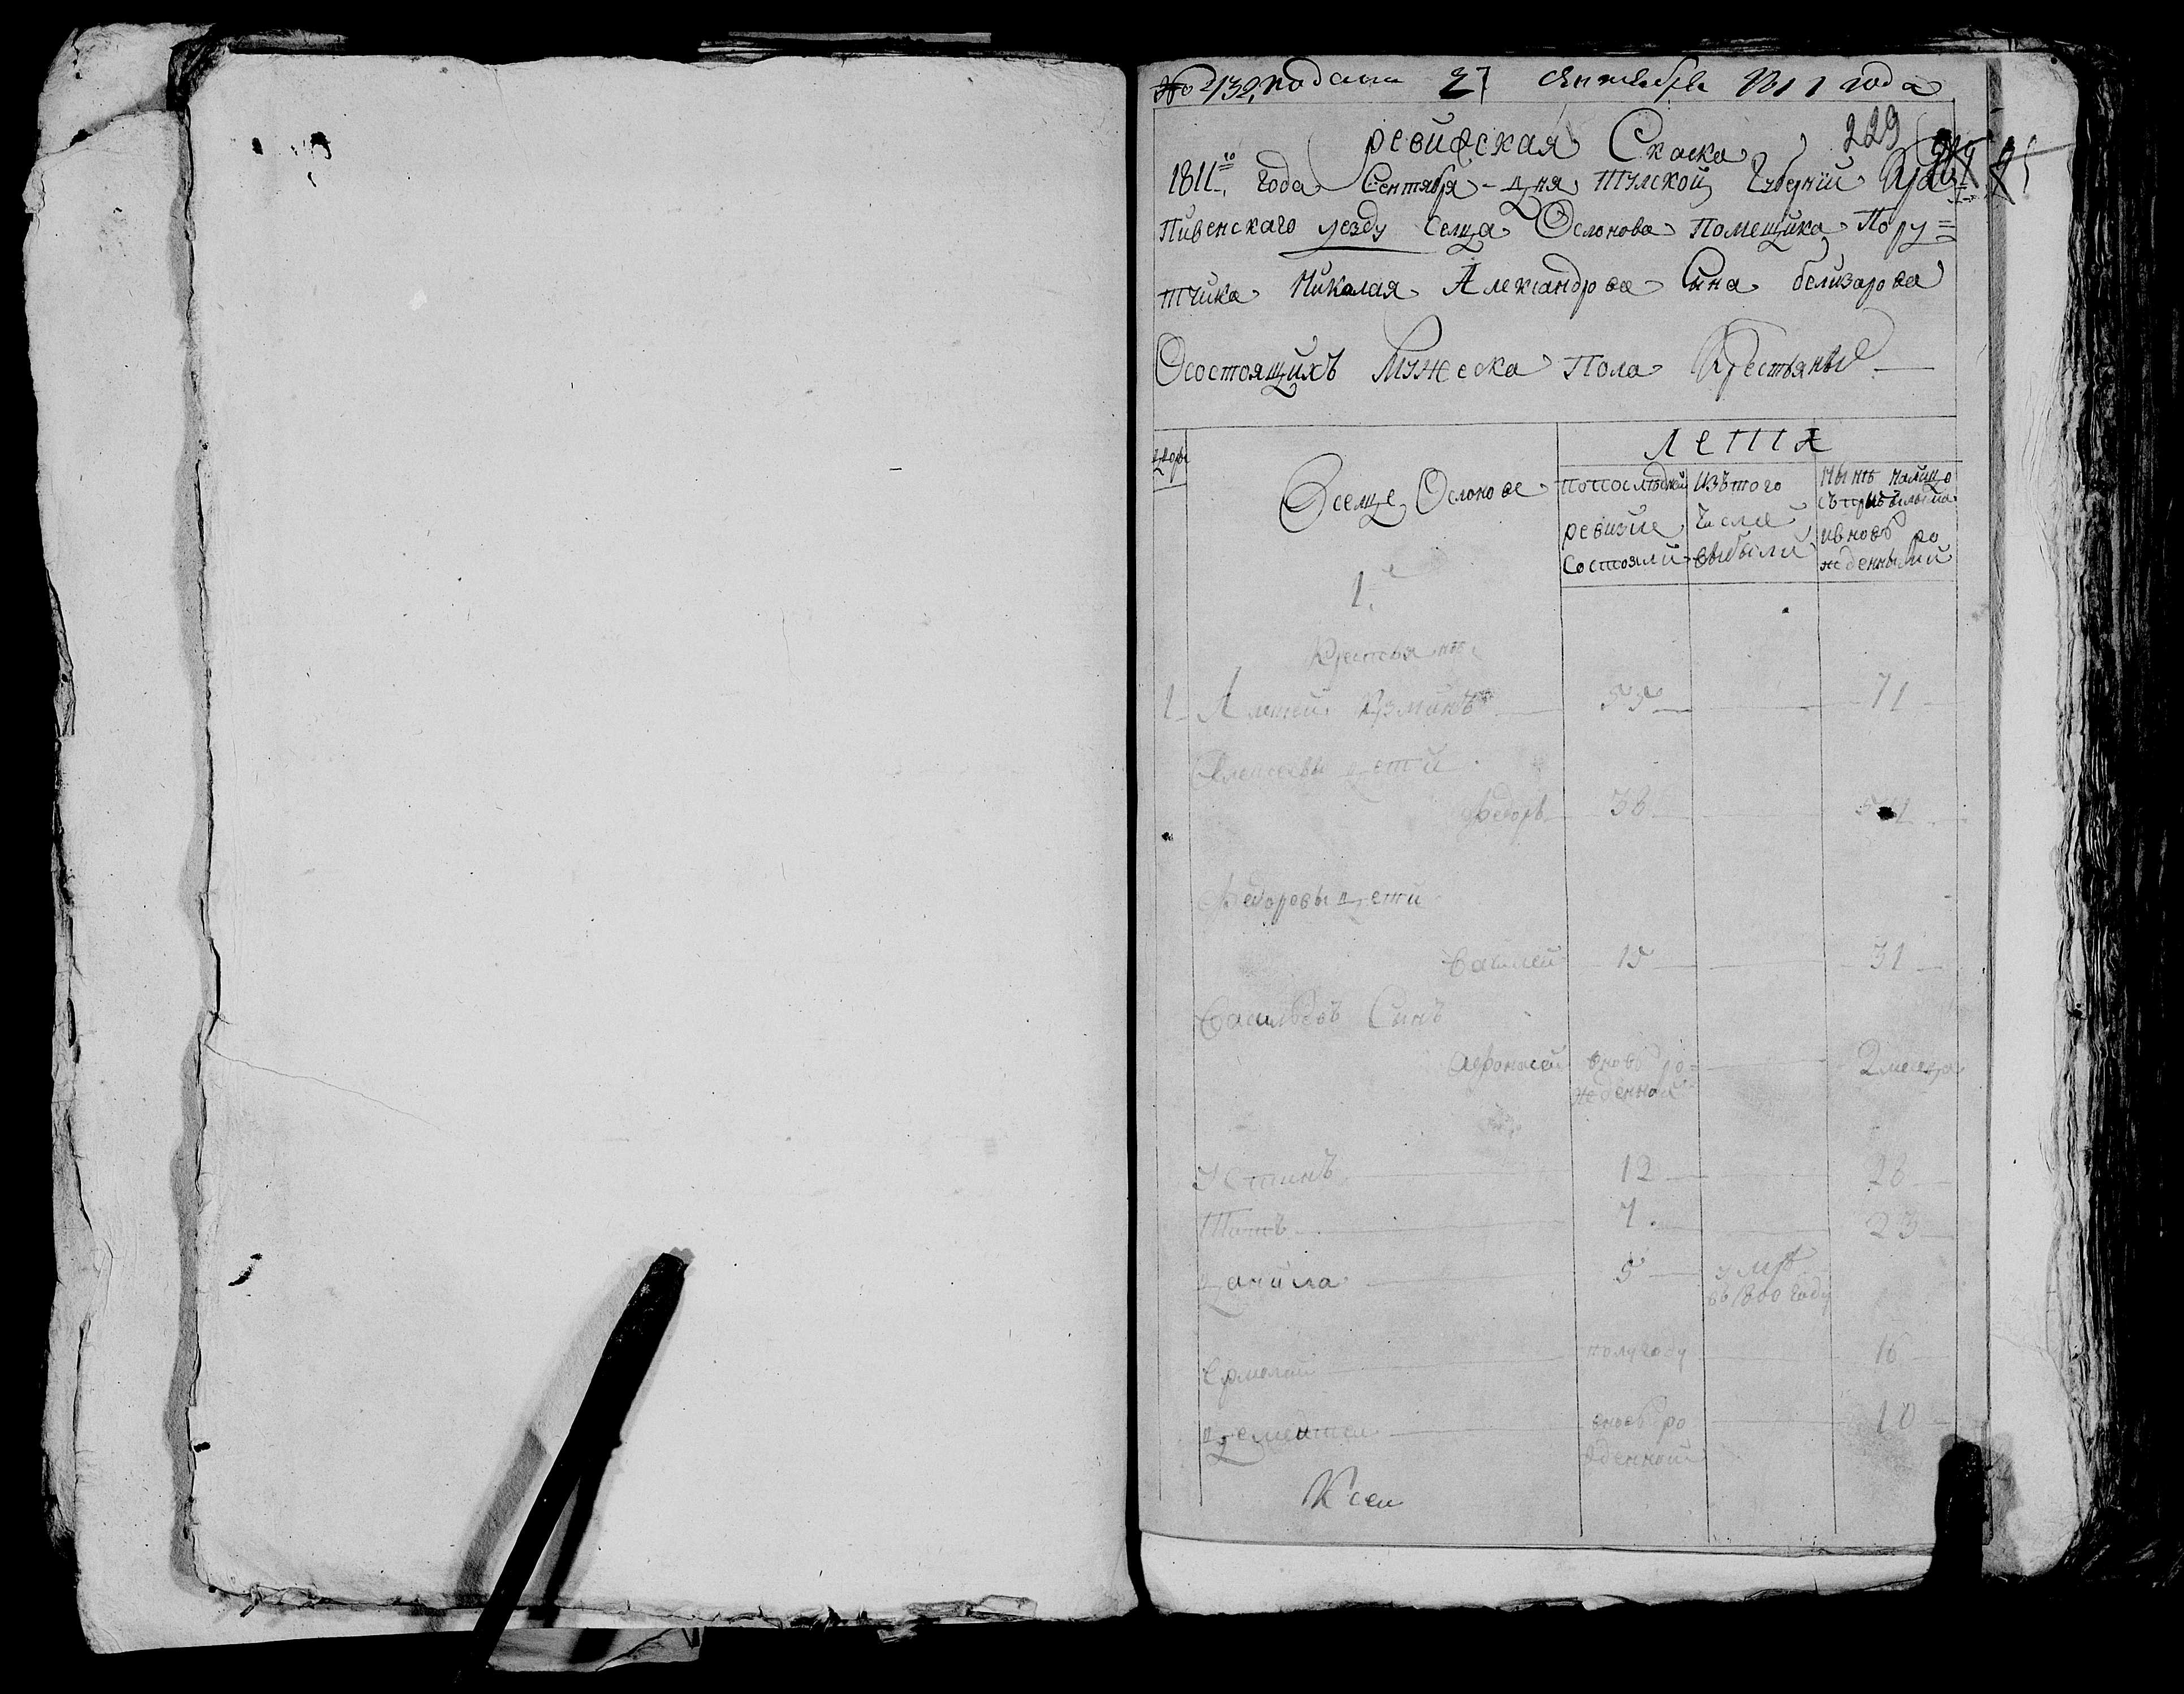 № 132, подана 27 сентября 1811 года
229
ревизская Скаска
1811го года Сентября - дня Тулской Губернии Кра=
пивенского уезду Селца Ослонова Помещика Пору=
тчика Николая Александрова Сына белизарова
Осостоящихъ Мужеска Пола Крестьяны
дворы
Вселце Ослонове
Лета
попоследней ревизие Состояли
изътого Числа выбыли
Нынѣ налицо съприбылыма ивновь рожденными
1.
Крестьяне
1 Алексей Кузминъ 55 71
Алексеевы дети
Федоръ 38
Федоровы дети
Василей 15 31
Васильевъ Сынъ
Афонасей вновь ро= 2 месяца
жденной
Устинъ 12 28
7 23
Данила 5 умре
въ 1800 году
Ермолай полугоду 16
Дементей вновь ро 10
жденной
Ксеи